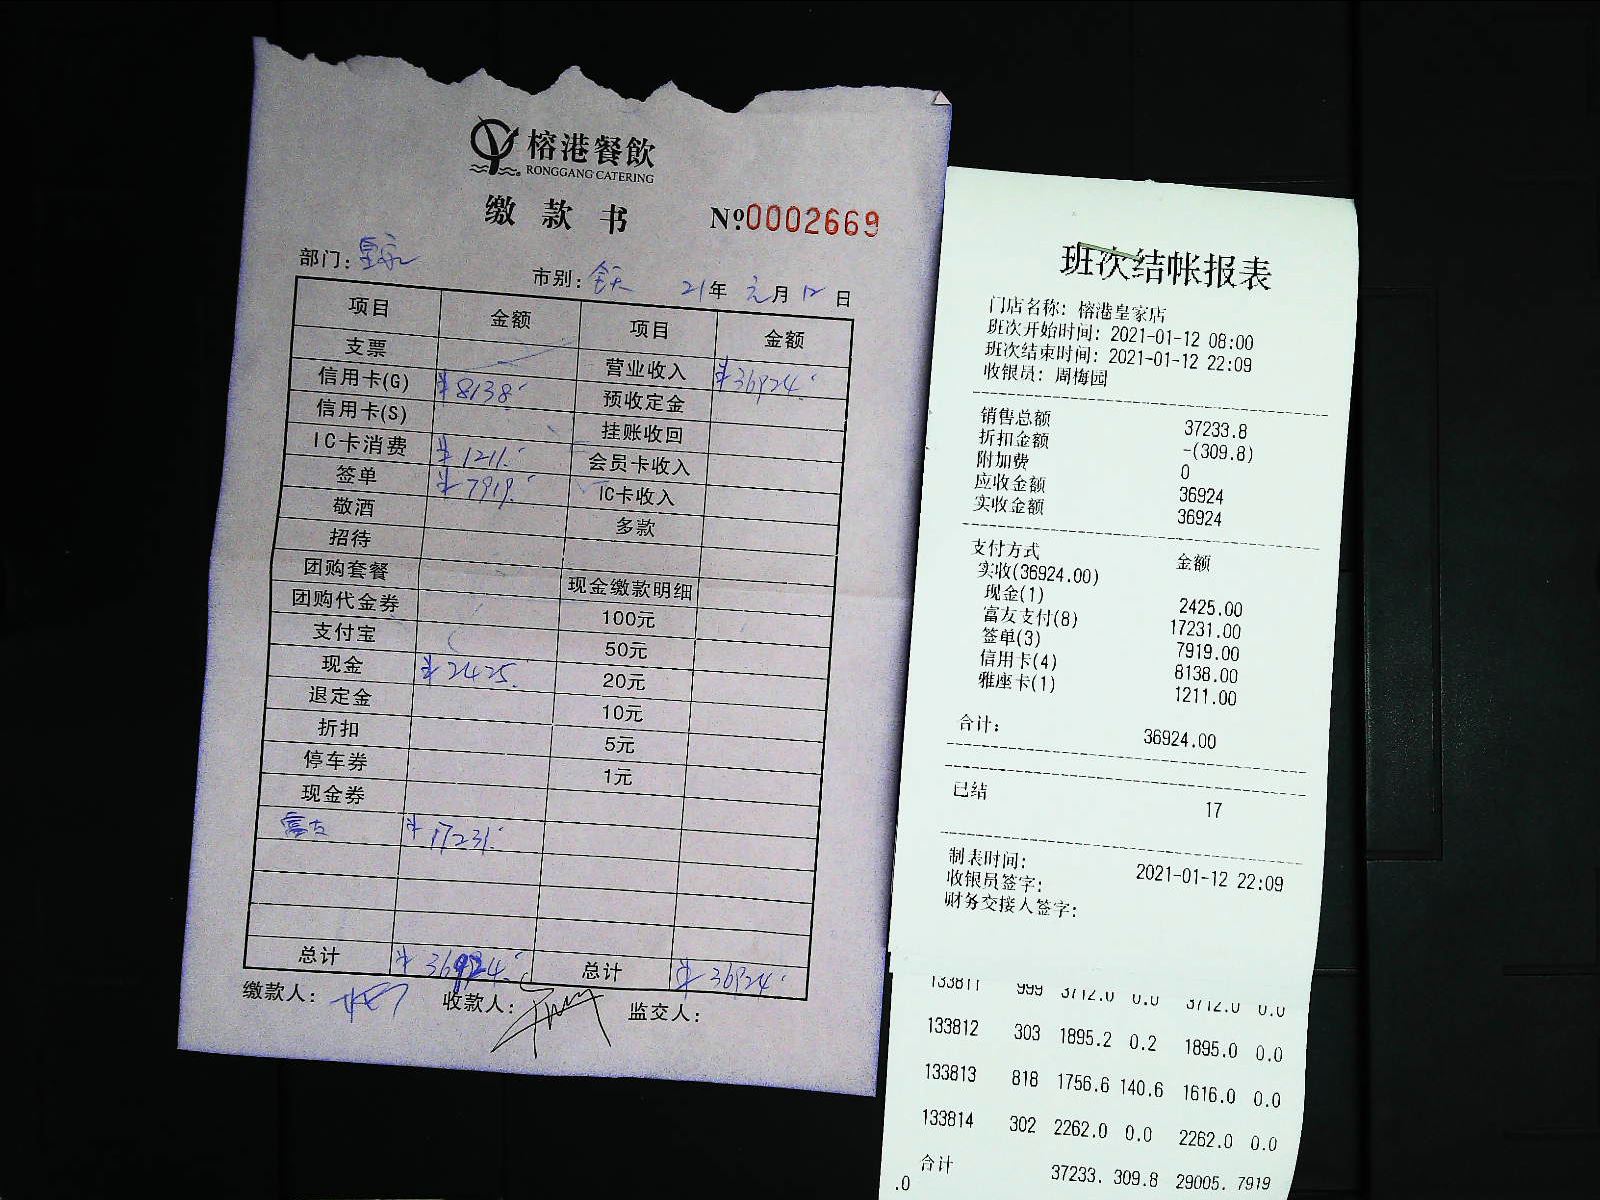 榕港餐飲
RONGGANG CATERING
缴款书 №0002669
部门: 皇家 市别: 全天 21年 元月 12日
项目 金额 项目 金额
支票 营业收入 ¥36924.
信用卡(G) ¥8138. 预收定金
信用卡(S) 挂账收回
IC卡消费 ¥1211. 会员卡收入
签单 ¥7919. IC卡收入
敬酒 多款
招待
团购套餐 现金缴款明细
团购代金券 100元
支付宝 50元
现金 ¥2425. 20元
退定金 10元
折扣 5元
停车券 1元
现金券
富友 ¥17231.
总计 ¥36924. 总计 ¥36924.
缴款人: 收款人: 监交人:
班次结帐报表
门店名称: 榕港皇家店
班次开始时间: 2021-01-12 08:00
班次结束时间: 2021-01-12 22:09
收银员: 周梅园
销售总额 37233.8
折扣金额 -(309.8)
附加费 0
应收金额 36924
实收金额 36924
支付方式 金额
实收(36924.00)
现金(1) 2425.00
富友支付(8) 17231.00
签单(3) 7919.00
信用卡(4) 8138.00
雅座卡(1) 1211.00
合计: 36924.00
已结 17
制表时间: 2021-01-12 22:09
收银员签字:
财务交接人签字:
133811 999 3712.0 0.0 3712.0 0.0
133812 303 1895.2 0.2 1895.0 0.0
133813 818 1756.6 140.6 1616.0 0.0
133814 302 2262.0 0.0 2262.0 0.0
合计 37233. 309.8 29005. 7919
.0